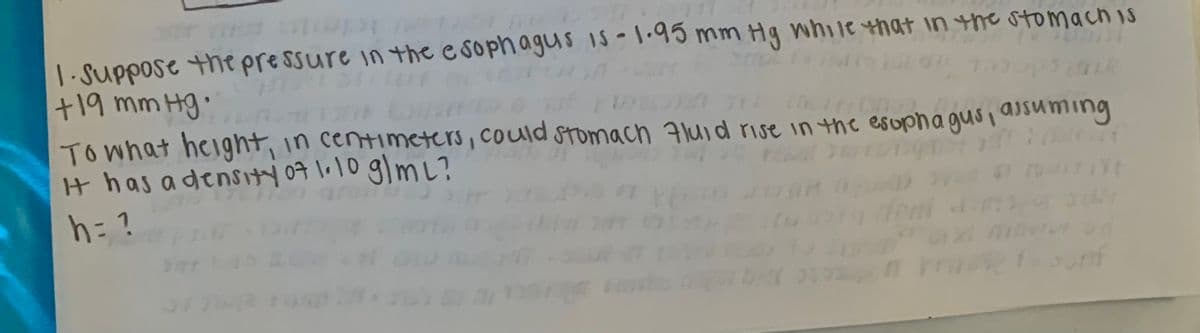 1. Suppose the pressure in the esophagus is -1.95 mm Hg while that in the stomach is
+19 mmHg.
To what height, in centimeters, could stomach fluid rise in the esophagus, assuming
It has a density of 1.10 g/mL?
h = ?